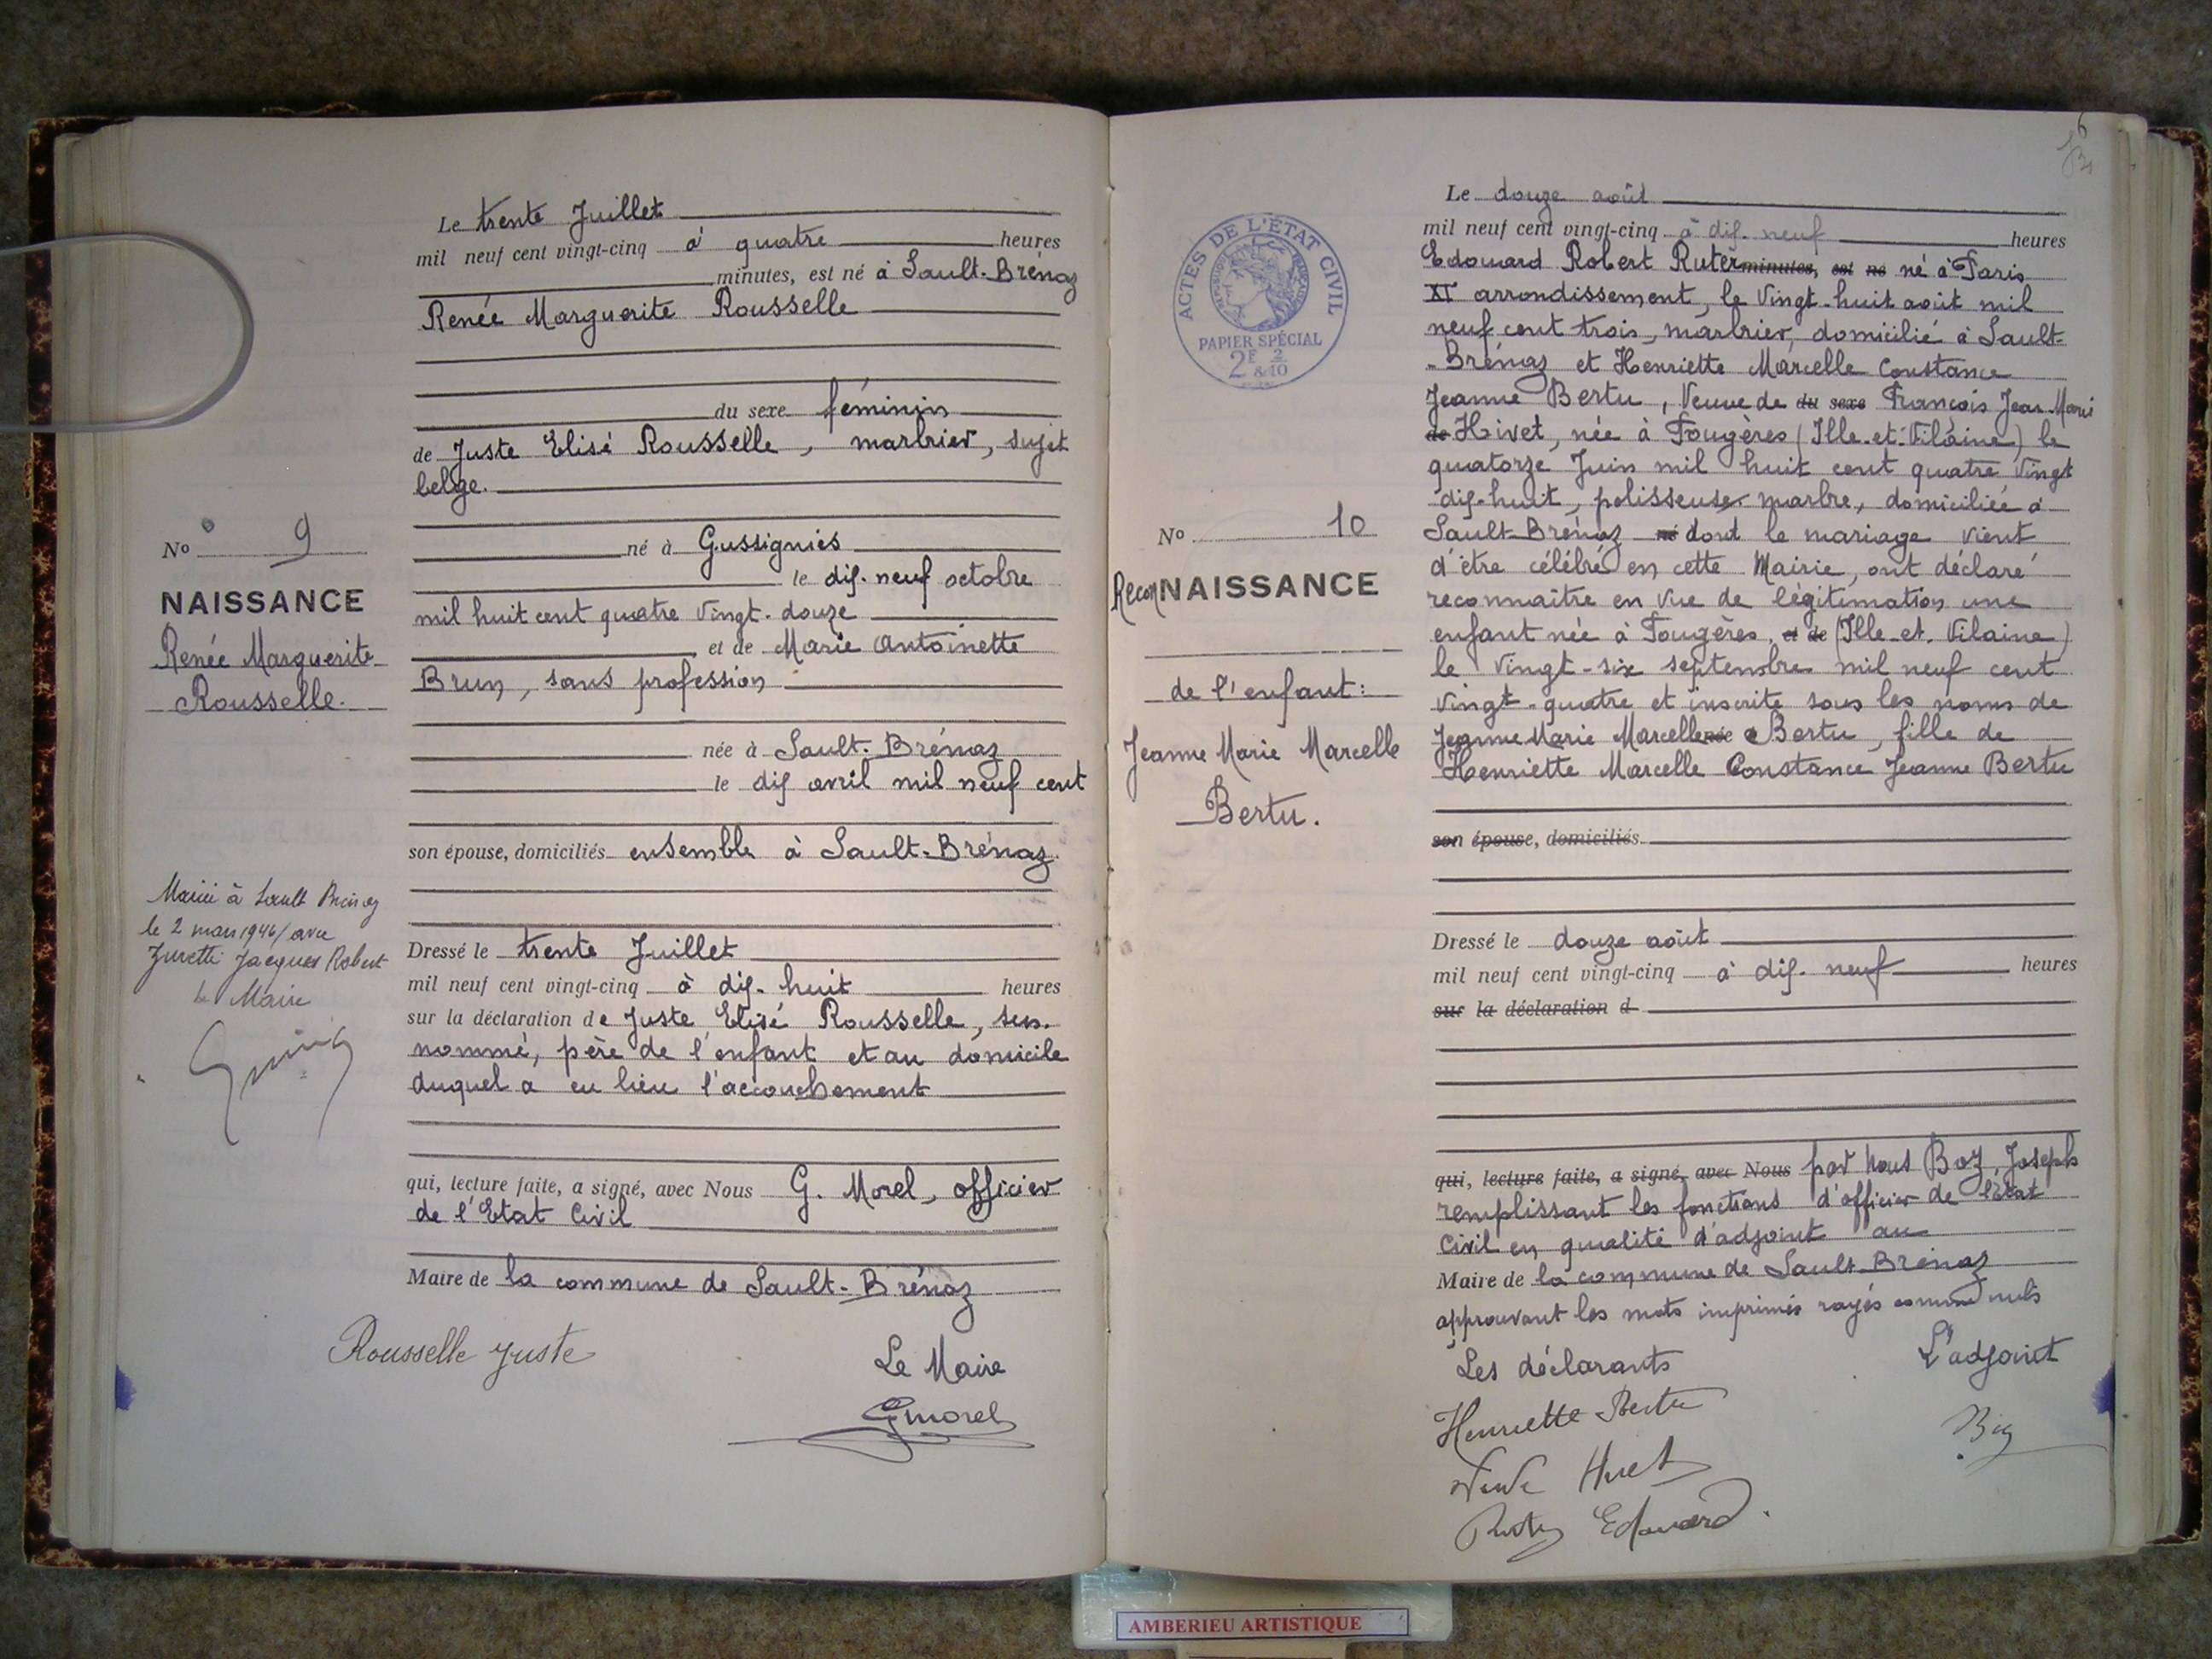 Le trente Juillet
mil neuf cent vingt-cinq à quatre heures
minutes, est né à Sault-Brénaz
Renée Marguerite Rousselle
du sexe féminin
de Juste Elisé Rousselle, marbrier, sujet
belge.
né à Gussignies
le dix-neuf octobre
mil huit cent quatre vingt-douze
et de Marie Antoinette
Brun, sans profession
née à Sault-Brénaz
le dix avril mil neuf cent
son épouse, domiciliés ensemble à Sault-Brénaz.
Dressé le trente Juillet
mil neuf cent vingt-cinq à dix-huit heures
sur la déclaration de Juste Elisé Rousselle, sus-
nommé, père de l'enfant et au domicile
duquel a eu lieu l'accouchement
qui, lecture faite, a signé, avec Nous G. Morel, officier
de l'Etat Civil
Maire de la commune de Sault-Brénaz
Rousselle Juste
Le Maire
GMorel
No 9
NAISSANCE
Renée Marguerite
Rousselle.
Marié à Sault Brénaz
le 2 mars 1946 avec
Zuretti Jacques Robert
Le Maire
6
ACTES DE L'ÉTAT CIVIL
PAPIER SPÉCIAL
2F & 2/10
No 10
ReconNAISSANCE
de l'enfant:
Jeanne Marie Marcelle
Bertu.
Le douze août
mil neuf cent vingt-cinq à dix-neuf heures
Edouard Robert Ruter minutes, est né né à Paris
XI arrondissement, le vingt-huit août mil
neuf cent trois, marbrier, domicilié à Sault-
-Brénaz et Henriette Marcelle Constance
Jeanne Bertu, Veuve de du sexe François Jean Marie
de Hivet, née à Fougères (Ille-et-Vilaine) le
quatorze Juin mil huit cent quatre vingt
dix-huit, polisseuse marbre, domiciliée à
Sault-Brénaz né dont le mariage vient
d'être célébré en cette Mairie, ont déclaré
reconnaître en vue de légitimation une
enfant née à Fougères, et de (Ille-et-Vilaine)
le vingt-six septembre mil neuf cent
vingt-quatre et inscrite sous les noms de
Jeanne Marie Marcelle née à Bertu, fille de
Henriette Marcelle Constance Jeanne Bertu
son épouse, domiciliés
Dressé le douze août
mil neuf cent vingt-cinq à dix-neuf heures
sur la déclaration d
qui, lecture faite, a signé, avec Nous par Nous Boz, Joseph
remplissant les fonctions d'officier de l'Etat
Civil en qualité d'adjoint au
Maire de la commune de Sault-Brénaz
approuvant les mots imprimés rayés comme nuls
Les déclarants
L'adjoint
Henriette Bertu
Veuve Hivet
Ruter Edouard
AMBERIEU ARTISTIQUE